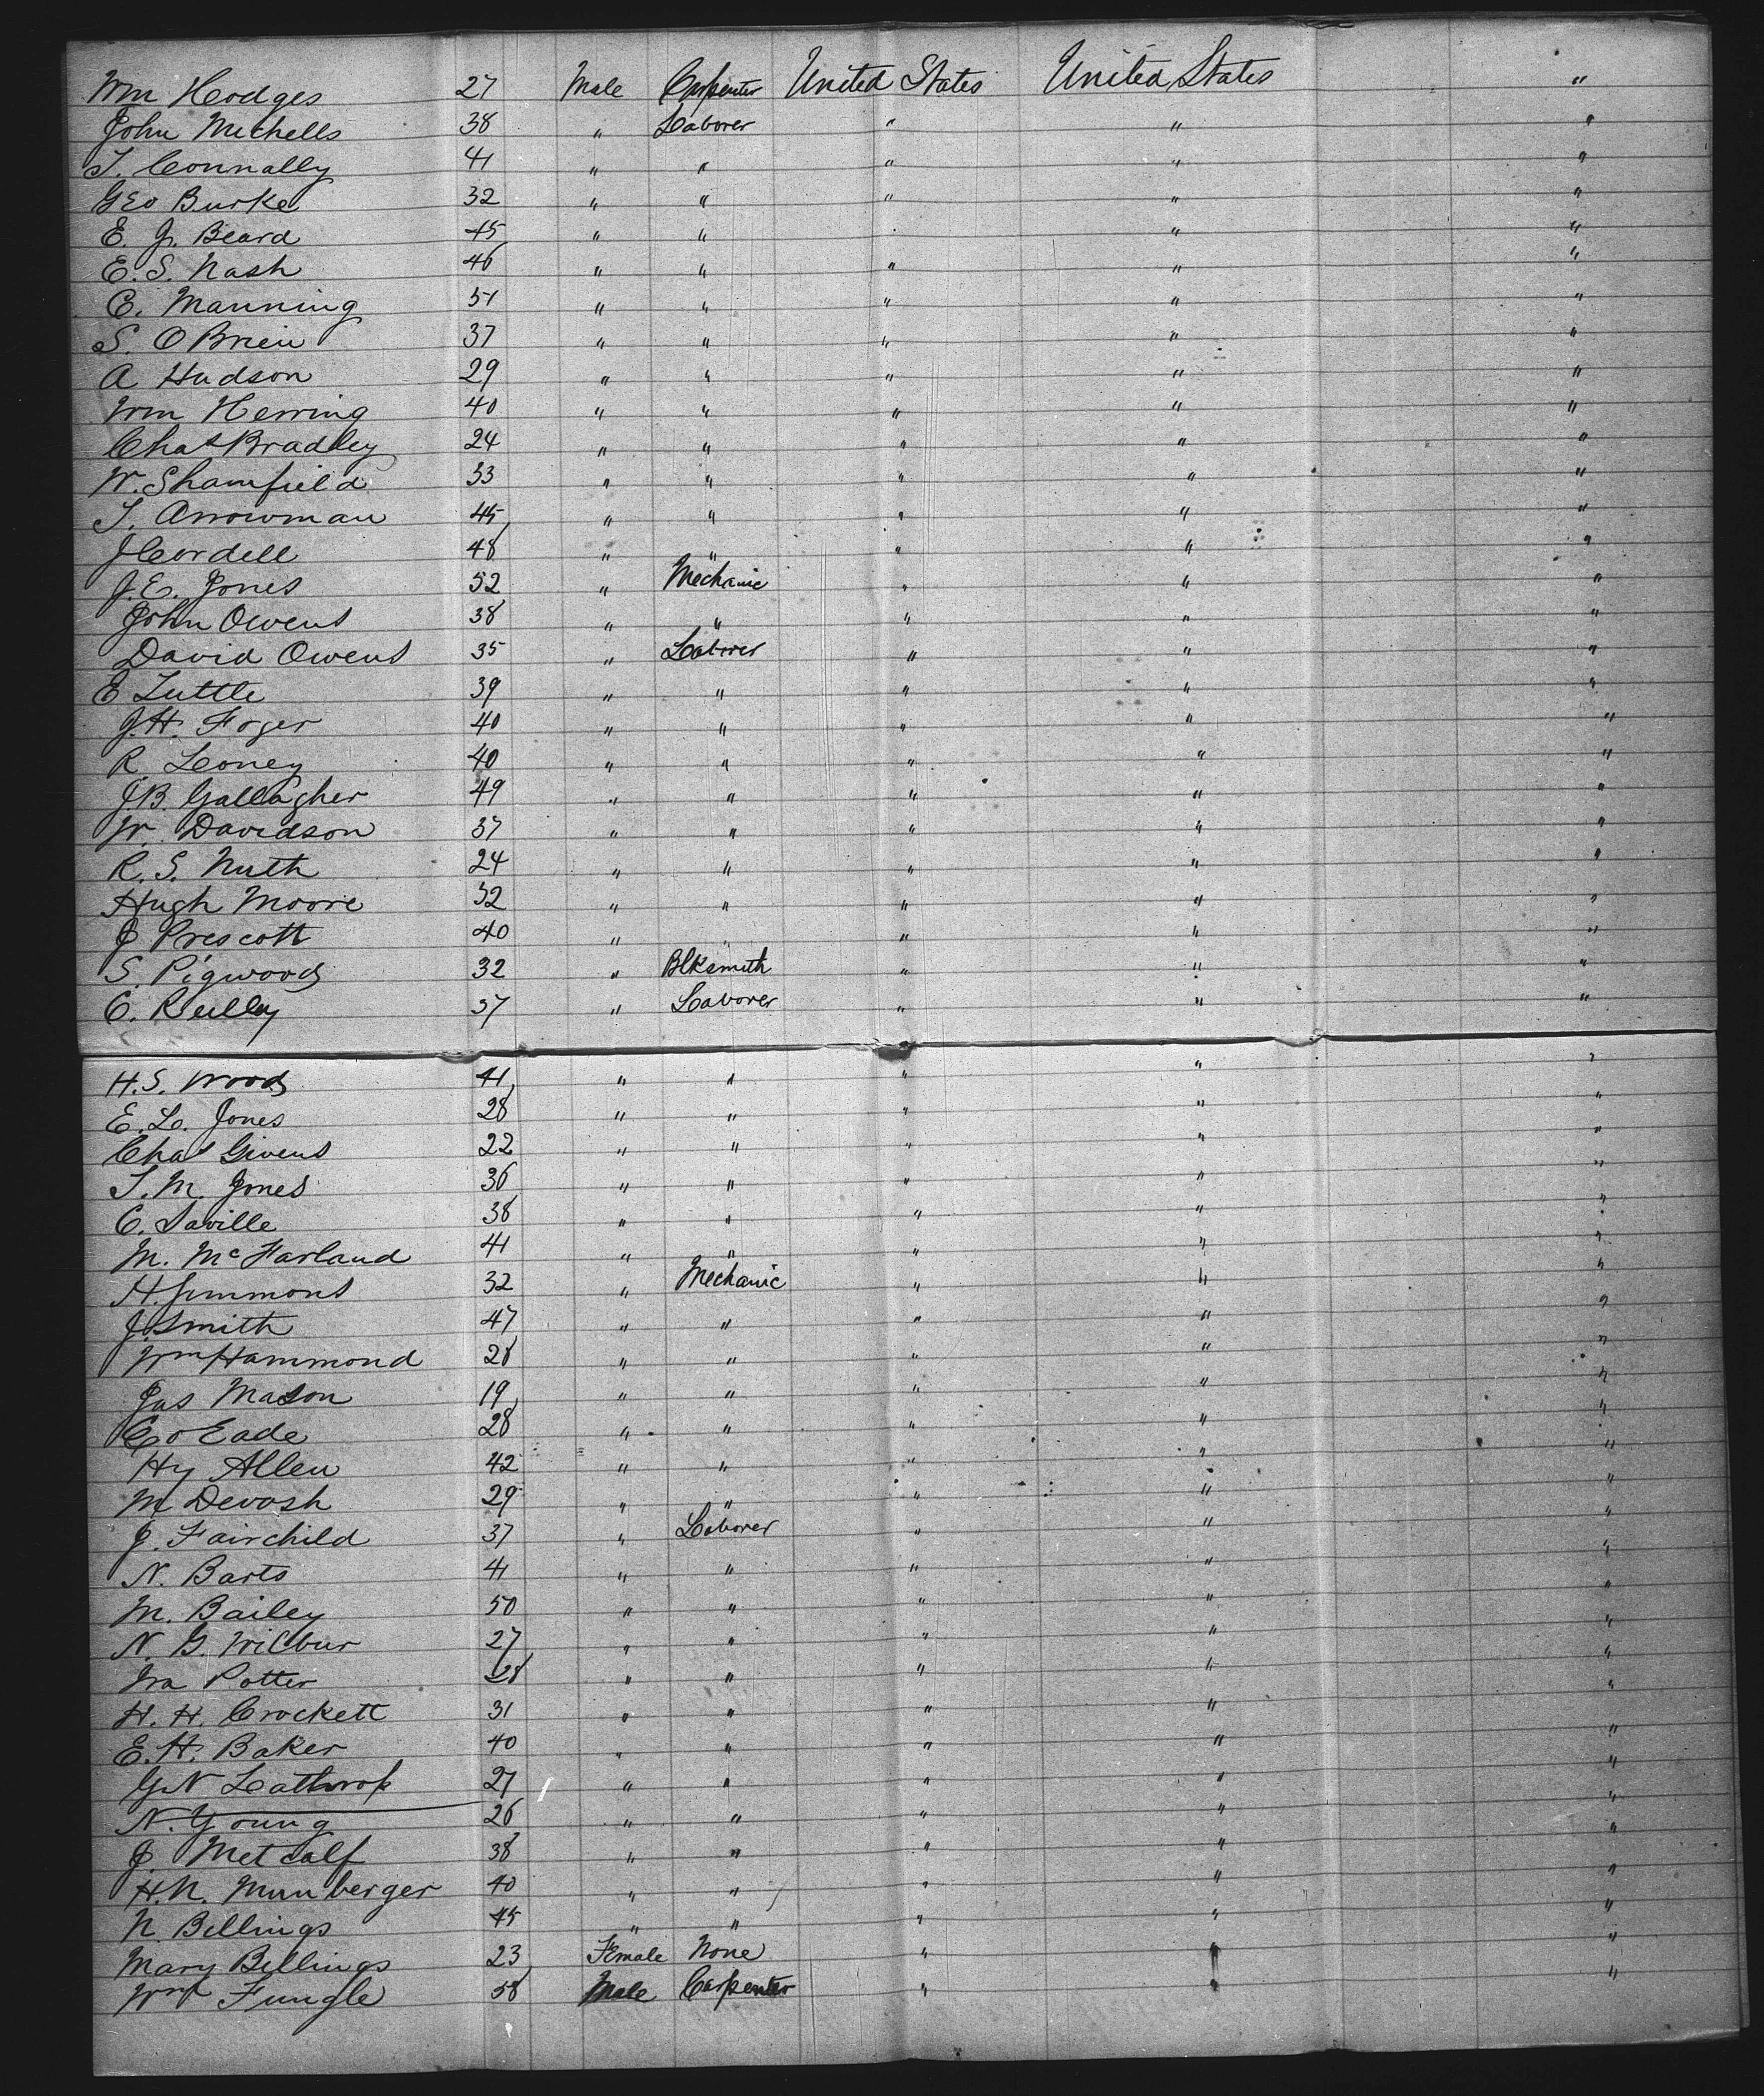 Wm Hodges 27 Male Carpenter United States United States "
John Michells 38 " Laborer " " "
T. Connally 41 " " " " "
Geo Burke 32 " " " " "
E. J. Beard 45 " " " "
E. S. Nash 46 " " " " "
C. Manning 51 " " " " "
S. O Brien 37 " " " " "
A Hudson 29 " " " " "
Wm Herring 40 " " " " "
Chas Bradley 24 " " " " "
W. Shamfield 33 " " " " "
T. Arrowman 45 " " " " "
J Cordell 48 " " " " "
J. E. Jones 52 " Mechanic " " "
John Owens 38 " " " " "
David Owens 35 " Laborer " " "
E Tuttle 39 " " " " "
J. H. Foger 40 " " " " "
R. Looney 40 " " " " "
J. B. Gallagher 49 " " " " "
W. Davidson 37 " " " " "
R. S. Nuth 24 " " " " "
Hugh Moore 32 " " " " "
J Prescott 40 " " " " "
S. Pigwood 32 " Blksmith " " "
C. Reilly 37 " Laborer " " "
H. S. Woods 41 " " " " "
E. L. Jones 28 " " " " "
Chas Givens 22 " " " " "
T. M. Jones 36 " " " " "
C. Saville 38 " " " " "
M. McFarland 41 " " " " "
H. Simmons 32 " Mechanic " " "
J. Smith 47 " " " " "
Wm Hammond 28 " " " " "
Jas Mason 19 " " " " "
Eade 28 " " " " "
Hy Allen 42 " " " " "
M Devosh 29 " " " " "
J. Fairchild 37 " Laborer " " "
N. Barts 41 " " " " "
M. Bailey 50 " " " " "
N. G. Wilbur 27 " " " " "
Ira Potter 28 " " " " "
H. H. Crockett 31 " " " " "
E. H. Baker 40 " " " " "
G N Lathrop 27 " " " " "
N. Young 26 " " " " "
J. Metcalf 38 " " " " "
H. N. Munberger 40 " " " " "
N. Billings 45 " " " " "
Mary Billings 23 Female None " " "
Wm Fungle 58 Male Carpenter " " "